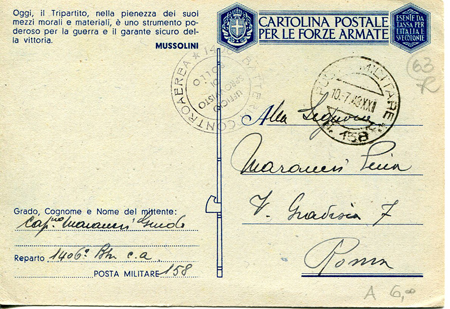 Oggi, il Tripartito, nella pienezza dei suoi
mezzi morali e materiali, è uno strumento po-
deroso per la guerra e il garante sicuro del-
la vittoria.
MUSSOLINI
CARTOLINA POSTALE
PER LE FORZE ARMATE
ESENTE DA
TASSA PER
L'ITALIA E
COLONIE
63
POSTA MILITARE
10.-7.43.XXI
N. 158
CONTROAEREA
UFFICIO
Alla Signora
Maraucci
V. Gradisca 7
Roma
Grado, Cognome e Nome del mittente:
Cap. Maraucci Guido
Reparto 1406ª Btr c.a.
POSTA MILITARE 158
A 6,00